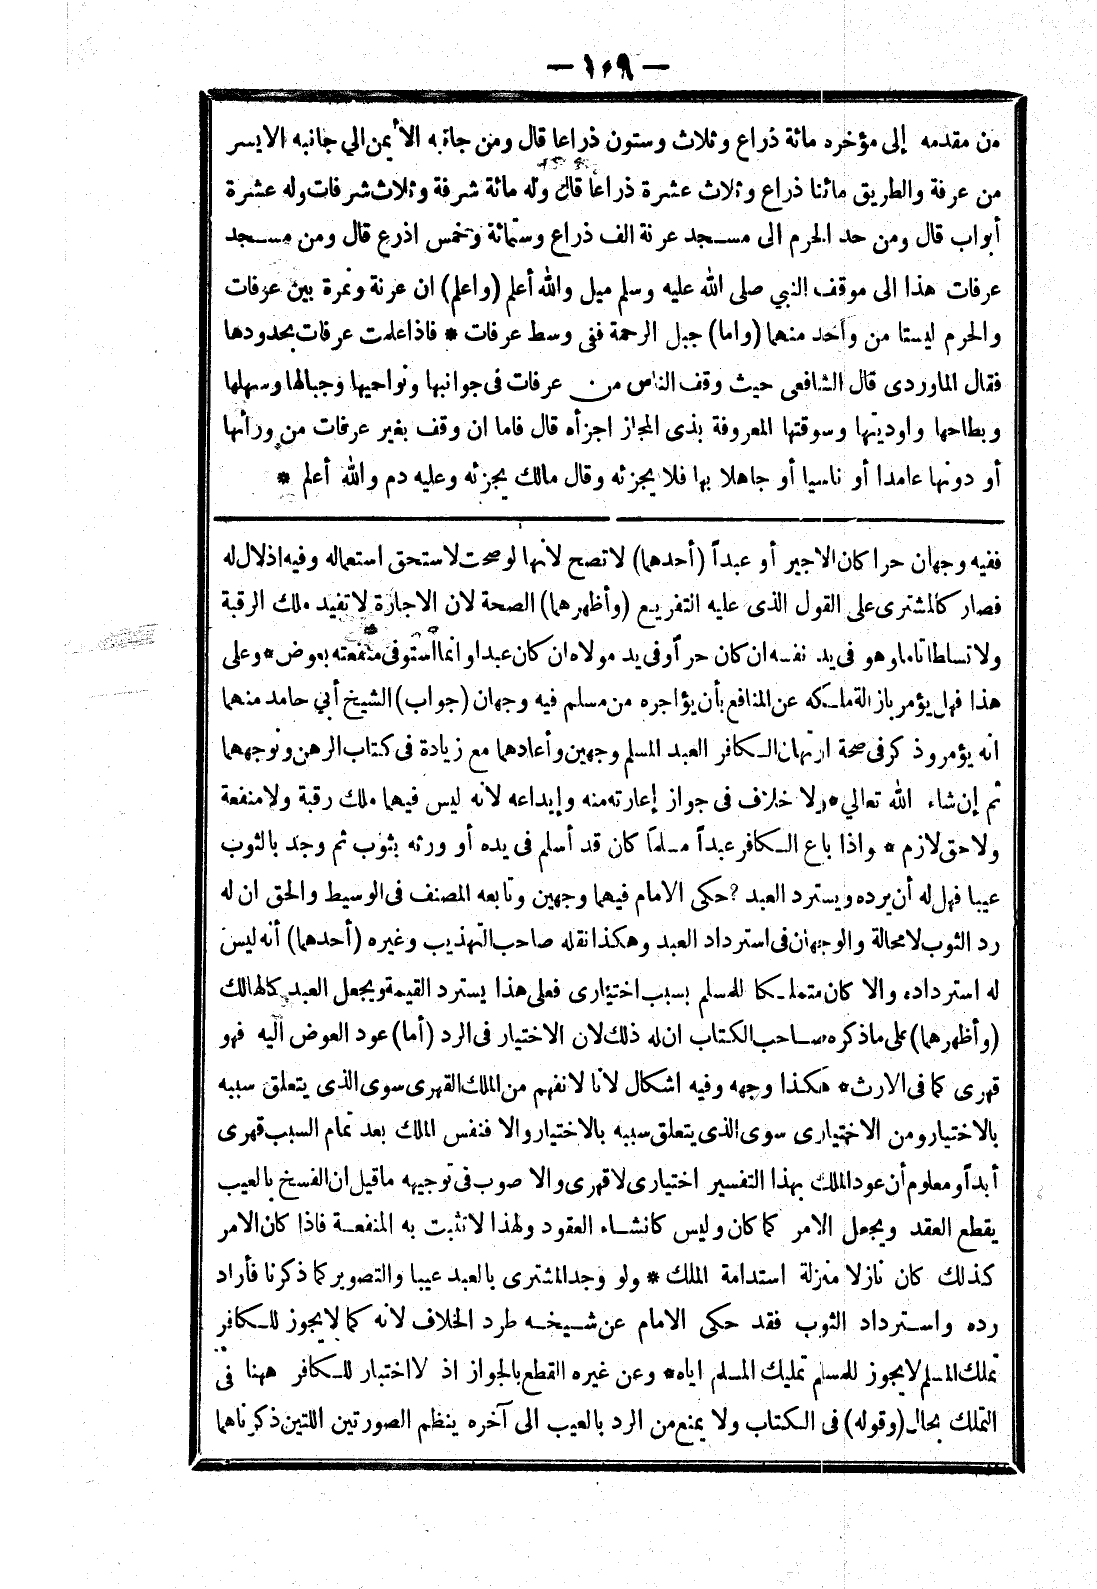 — ١٠٩ —
من مقدمه إلى مؤخره مائة ذراع وثلاث وستون ذراعا قال ومن جانبه الأيمن الي جانبه الايسر
من عرفة والطريق مائتا ذراع وثلاث عشرة ذراعا قال وله مائة شرفة وثلاث شرفات وله عشرة
أبواب قال ومن حد الحرم الى مسجد عرنة الف ذراع وستمائة وخمس اذرع قال ومن مسجد
عرفات هذا الى موقف النبي صلى الله عليه وسلم ميل والله أعلم (واعلم) ان عرنة ونمرة بين عرفات
والحرم ليستا من واحد منهما (واما) جبل الرحمة ففى وسط عرفات * فاذا علمت عرفات بحدودها
فقال الماوردى قال الشافعى حيث وقف الناس من عرفات فى جوانبها ونواحيها وجبالها وسهلها
وبطاحها واوديتها وسوقتها المعروفة بذى المجاز اجزأه قال فاما ان وقف بغير عرفات من ورائها
أو دونها عامدا أو ناسيا أو جاهلا بها فلا يجزئه وقال مالك يجزئه وعليه دم والله أعلم *
ففيه وجهان حرا كان الاجير أو عبداً (أحدهما) لا تصح لأنها لو صحت لاستحق استعماله وفيه اذلال له
فصار كالمشترى على القول الذى عليه التفريع (وأظهرهما) الصحة لان الاجارة لا تفيد ملك الرقبة
ولا تسلطا تاما وهو فى يد نفسه ان كان حراً وفى يد مولاه ان كان عبدا وانما استوفى منفعته بعوض * وعلى
هذا فهل يؤمر بازالة ملكه عن المنافع بأن يؤاجره من مسلم فيه وجهان (جواب) الشيخ أبي حامد منهما
انه يؤمر وذكر فى صحة ارتهان الكافر العبد المسلم وجهين وأعادهما مع زيادة فى كتاب الرهن ونوجههما
ثم إن شاء الله تعالي * ولا خلاف فى جواز إعارته منه وإيداعه لأنه ليس فيهما ملك رقبة ولا منفعة
ولا حق لازم * واذا باع الكافر عبداً مسلماً كان قد أسلم فى يده أو ورثه بثوب ثم وجد بالثوب
عيبا فهل له أن يرده ويسترد العبد ? حكى الامام فيهما وجهين وتابعه المصنف فى الوسيط والحق ان له
رد الثوب لا محالة والوجهان فى استرداد العبد وهكذا نقله صاحب التهذيب وغيره (أحدهما) أنه ليس
له استرداده والا كان متملكا للمسلم بسبب اختيارى فعلى هذا يسترد القيمة ويجعل العبد كالهالك
(وأظهرهما) على ما ذكره صاحب الكتاب ان له ذلك لان الاختيار فى الرد (أما) عود العوض اليه فهو
قهرى كما فى الارث * هكذا وجهه وفيه اشكال لأنا لا نفهم من الملك القهرى سوى الذى يتعلق سببه
بالاختيار ومن الاختيارى سوى الذى يتعلق سببه بالاختيار والا فنفس الملك بعد تمام السبب قهرى
أبداً ومعلوم أن عود الملك بهذا التفسير اختيارى لا قهرى والاصوب فى توجيهه ما قيل ان الفسخ بالعيب
يقطع العقد ويجعل الامر كما كان وليس كانشاء العقود ولهذا لا تثبت به المنفعة فاذا كان الامر
كذلك كان نازلا منزلة استدامة الملك * ولو وجد المشترى بالعبد عيبا والتصوير كما ذكرنا فأراد
رده واسترداد الثوب فقد حكى الامام عن شيخه طرد الخلاف لأنه كما لا يجوز للكافر
تملك المسلم لا يجوز للمسلم تمليك المسلم اياه * وعن غيره القطع بالجواز اذ لا اختيار للكافر ههنا فى
التملك بحال (وقوله) فى الكتاب ولا يمنع من الرد بالعيب الى آخره ينظم الصورتين اللتين ذكرناهما